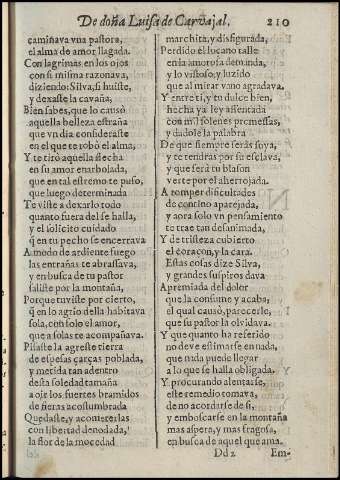 De doña Luisa de Carvajal. 210
camiñava vna pastora,
el alma de amor llagada.
Con lagrimas en los ojos
con si misma razonava,
diziendo: Silva, si huiste,
y dexaste la cavaña,
Bien sabes, que lo causò
aquella belleza estraña
que vn dia consideraste
en el que te robò el alma,
Y te tirò aquella flecha
en su amor enarbolada,
que en tal estremo te puso,
que luego determinada
Te viste a dexarlo todo
quanto fuera del se halla,
y el solicito cuidado
q̃ en tu pecho se encerrava
A modo de ardiente fuego
las entrañas te abrasava,
y en busca de tu pastor
saliste por la montaña,
Porque tuviste por cierto,
q̃ en lo agrio della habitava
sola, con solo el amor,
que a solas te acompañava.
Pisaste la agreste tierra
de espesas çarças poblada,
y metida tan adentro
desta soledad tamaña
a oir los fuertes bramidos
de fieras acostumbrada
Quedaste, y acometerlas
con libertad denodada,
la flor de la mocedad
marchita, y disfigurada,
Perdido el loçano talle
en la amorosa demanda,
y lo vistoso, y luzido
que al mirar vano agradava.
Y entre ti, y tu dulce bien,
hecha ya ley assentada
con mil solenes promessas,
y dadole la palabra
De que siempre seràs suya,
y te tendràs por su esclava,
y que serà tu blason
verte por el aherrojada.
A romper dificultades
de contino aparejada,
y aora solo vn pensamiento
te trae tan desanimada,
Y de tristeza cubierto
el coraçon, y la cara.
Estas cosas dize Silva,
y grandes suspiros dava
Apremiada del dolor
que la consume y acaba,
el qual causò, parecerle,
que su pastor la olvidava.
Y que quanto ha referido
no deve estimarse en nada,
que nada puede llegar
a lo que se halla obligada.
Y procurando alentarse,
este remedio tomava,
de no acordarse de si,
y emboscarse en la montaña
mas aspera, y mas fragosa,
en busca de aquel que ama.
Dd 2 Em-